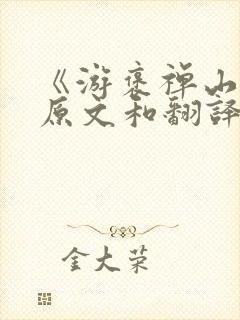 《游褒禅山
原文和翻译
金大荣